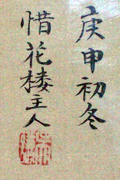 庚申初冬
惜花楼主人